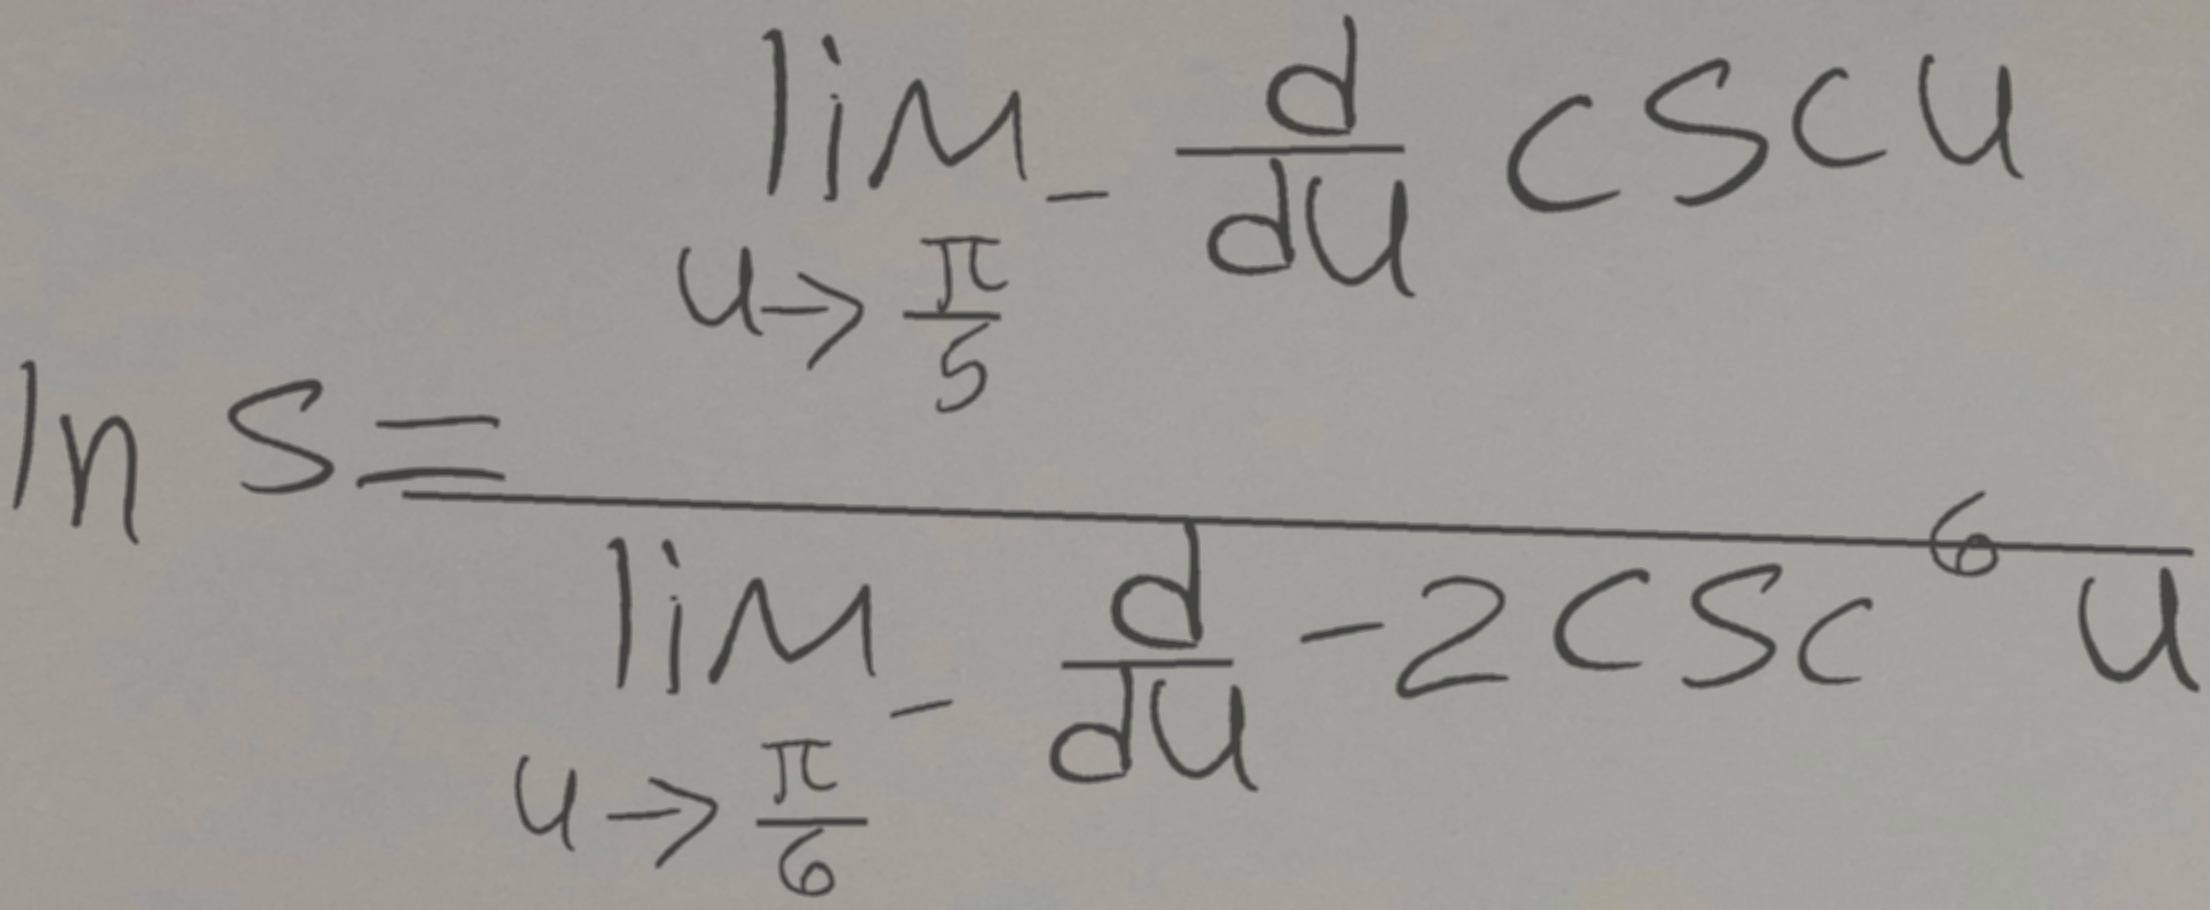 \ln s = \frac{\lim_{u \to \frac{\pi}{5}} - \frac{d}{du} \csc u}{\lim_{u \to \frac{\pi}{6}} - \frac{d}{du} - 2 \csc^{6} u}